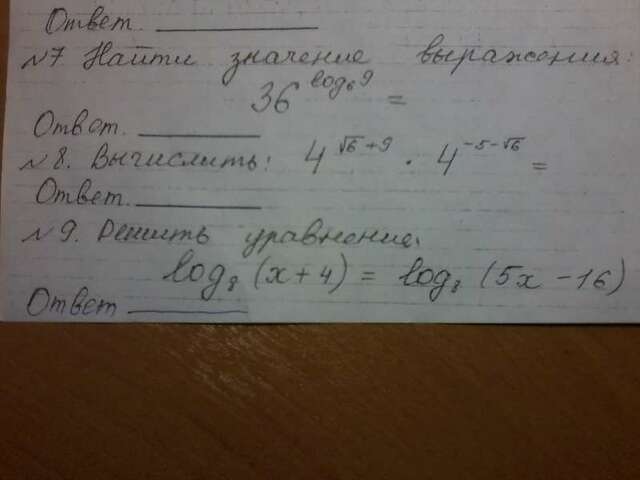 Ответ. ________
№7 Найти значение выражения:
36^{log₆9} =
Ответ. ________
№8. Вычислить: 4^{√6+9} · 4^{-5-√6} =
Ответ. ________
№9. Решить уравнение:
log₈(x+4) = log₈(5x-16)
Ответ ________